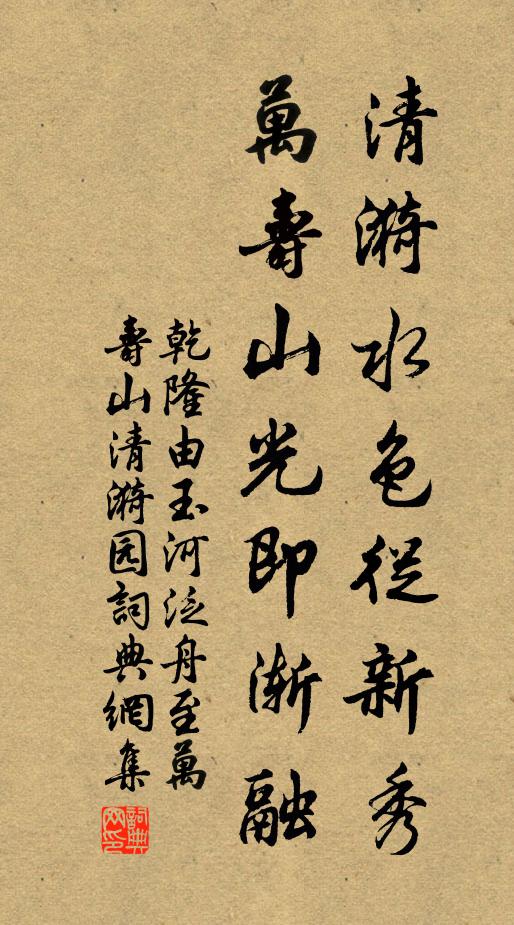 清漪水色從新秀
萬壽山光即漸融
乾隆由玉河泛舟至萬
壽山清漪园詞典網集
詞典
网印